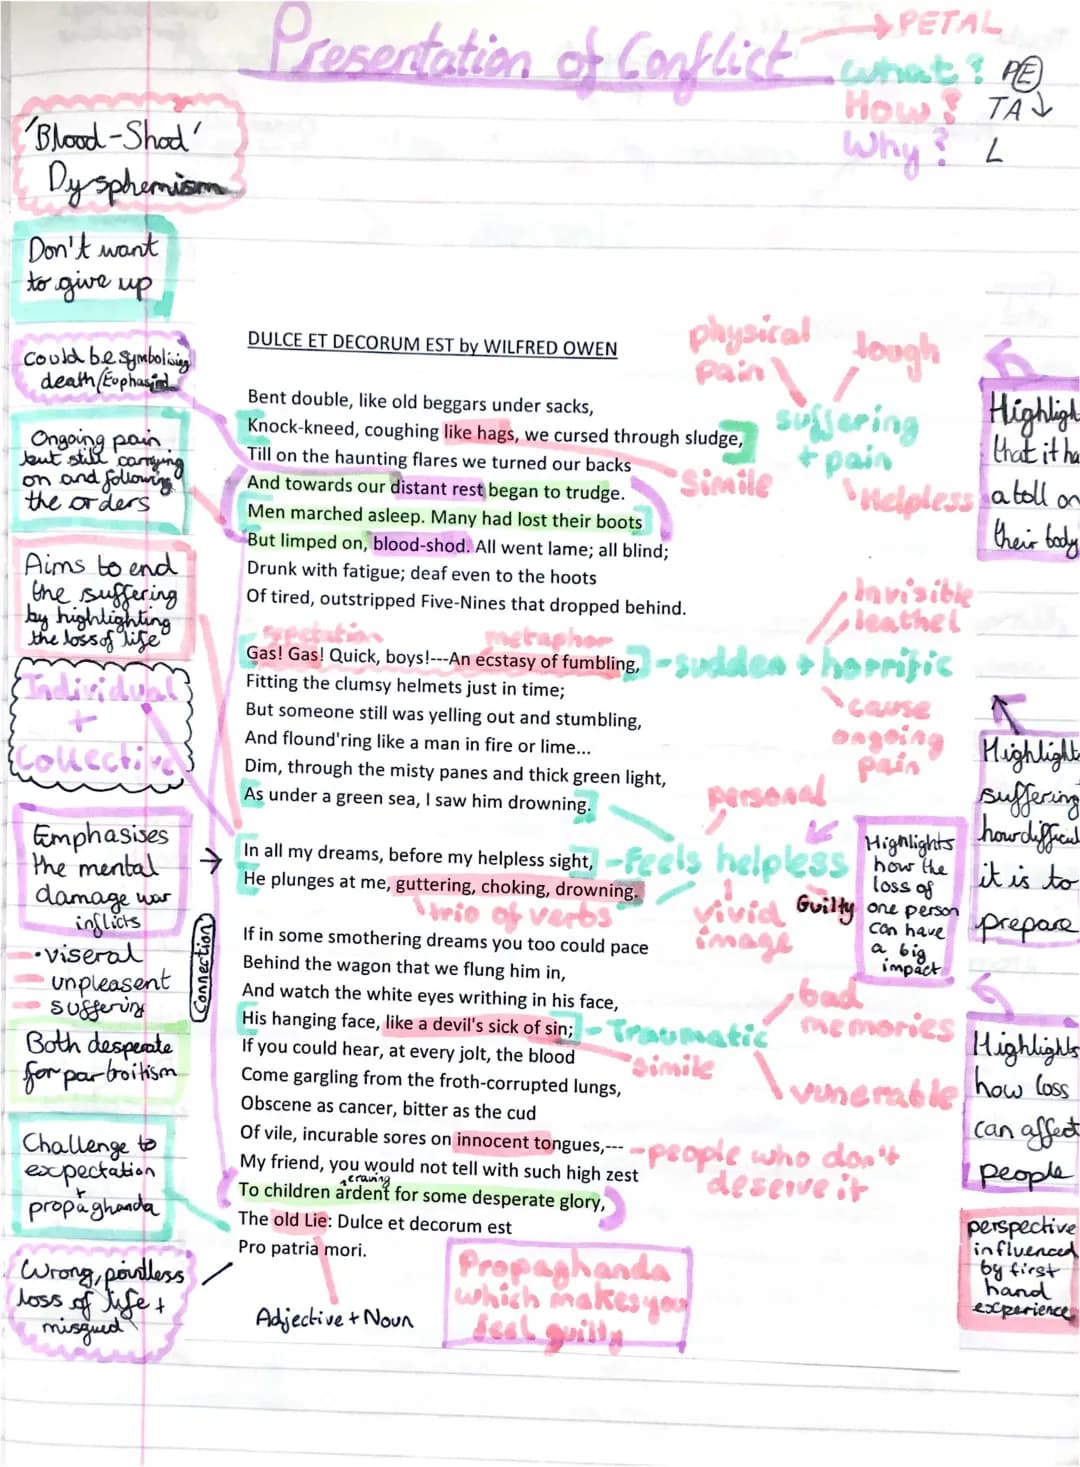 Presentation of Conflict
→ PETAL
What? PE
How? TA↓
Why? L
'Blood-Shod'
Dysphemism
Don't want
to give up
could be symbolising
death/Euphasim
Ongoing pain
but still carrying
on and following
the orders
Aims to end
the suffering
by highlighting
the loss of life
Individual
+
Collective
Emphasises
the mental
damage war
inflicts
•viseral
- unpleasent
- suffering
Connection
Both desperate
for partroitism
Challenge to
excpectation
+
propaghanda
Wrong, pointless
loss of life +
misgued
DULCE ET DECORUM EST by WILFRED OWEN
Bent double, like old beggars under sacks,
Knock-kneed, coughing like hags, we cursed through sludge,
Till on the haunting flares we turned our backs
And towards our distant rest began to trudge.
Men marched asleep. Many had lost their boots
But limped on, blood-shod. All went lame; all blind;
Drunk with fatigue; deaf even to the hoots
Of tired, outstripped Five-Nines that dropped behind.
metaphor
Gas! Gas! Quick, boys!---An ecstasy of fumbling,
Fitting the clumsy helmets just in time;
But someone still was yelling out and stumbling,
And flound'ring like a man in fire or lime...
Dim, through the misty panes and thick green light,
As under a green sea, I saw him drowning.
In all my dreams, before my helpless sight,
He plunges at me, guttering, choking, drowning.
trio of verbs
If in some smothering dreams you too could pace
Behind the wagon that we flung him in,
And watch the white eyes writhing in his face,
His hanging face, like a devil's sick of sin;
If you could hear, at every jolt, the blood
Come gargling from the froth-corrupted lungs,
Obscene as cancer, bitter as the cud
Of vile, incurable sores on innocent tongues,---
My friend, you would not tell with such high zest
craving
To children ardent for some desperate glory,
The old Lie: Dulce et decorum est
Pro patria mori.
Adjective + Noun
Propaghanda
which makes you
feal guilty
physical
pain
tough
suffering
+ pain
Simile
Helpless
Invisible
leathel
sudden + horrific
cause
ongoing
pain
personal
Feels helpless
vivid
image
Guilty
Highlights
how the
loss of
one person
can have
a big
impact
bad
memories
Traumatic
simile
vunerable
people who don't
deserve it
Highligh
that it ha
a toll on
their body
Highlight
suffering
how difficul
it is to
prepare
Highlights
how loss
can affect
people
perspective
influenced
by first
hand
excperience